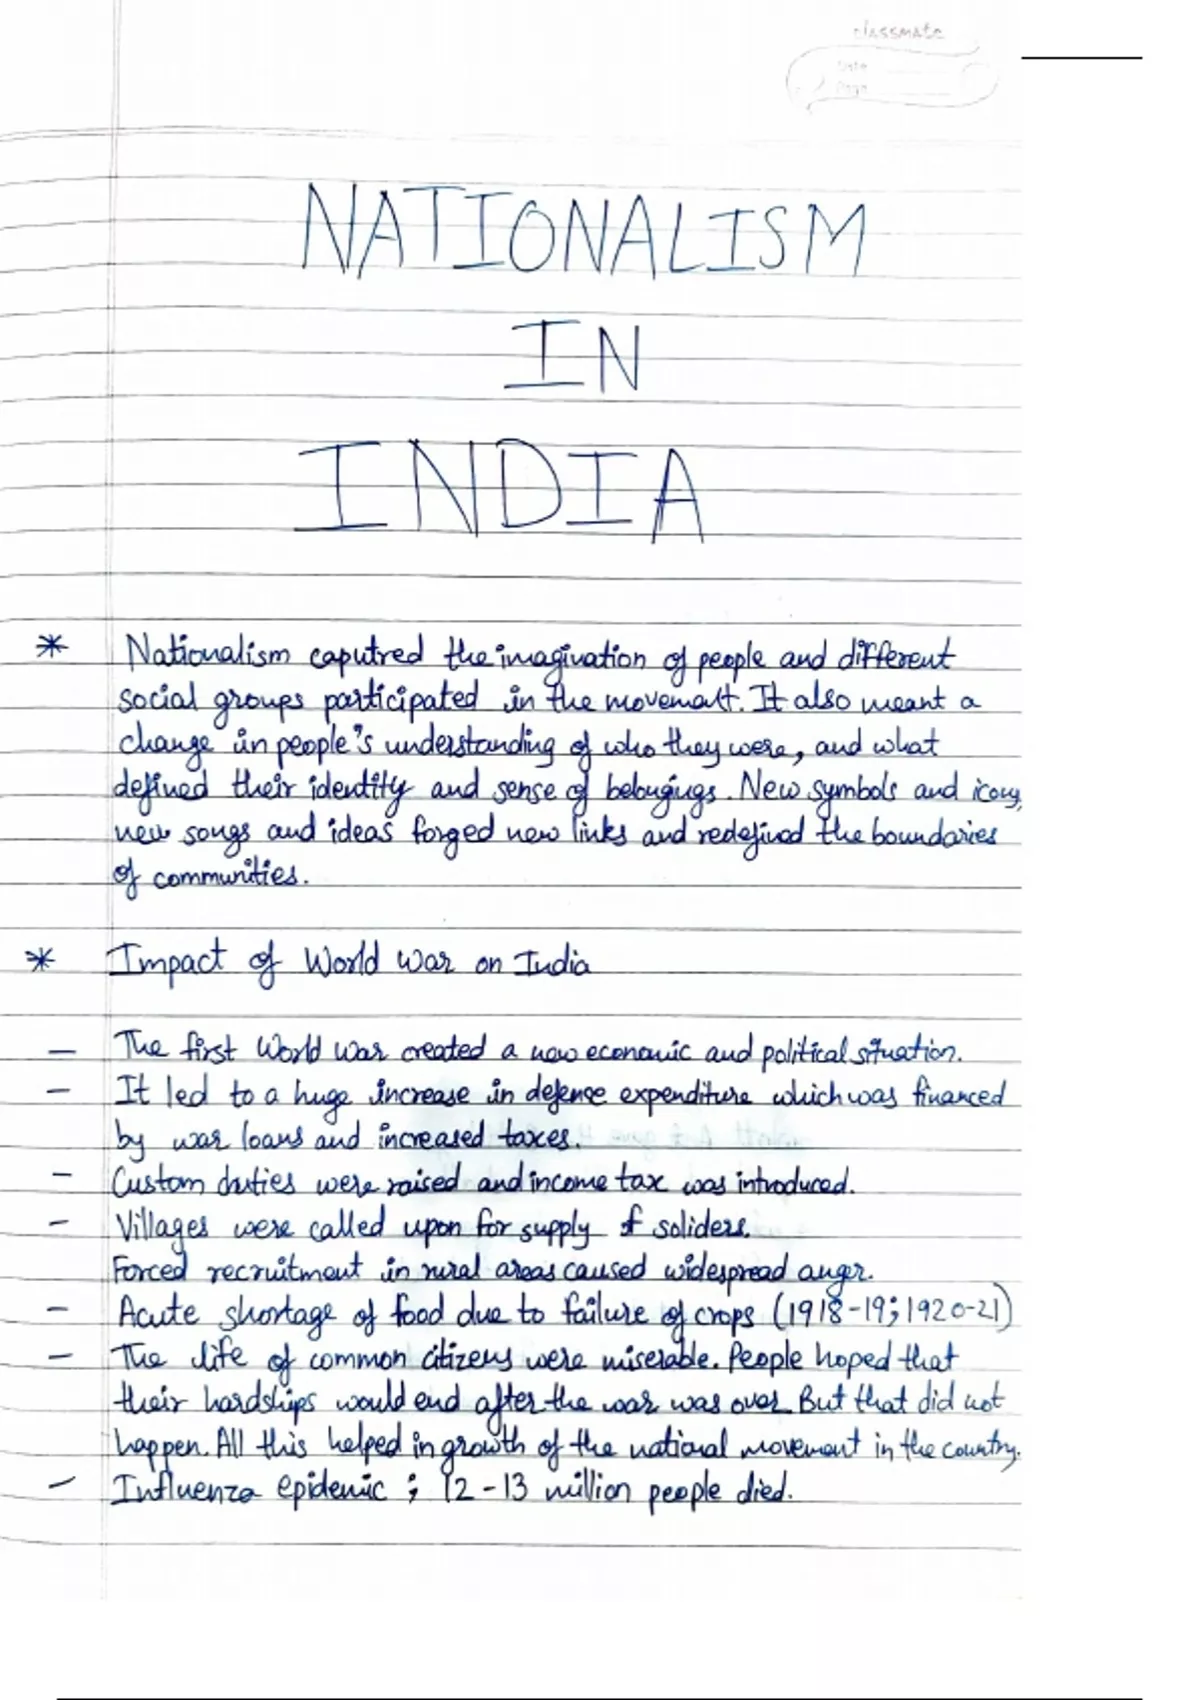 classmate
Date
Page
NATIONALISM
IN
INDIA
* Nationalism caputred the imagination of people and different
social groups participated in the movement. It also meant a
change in people's understanding of who they were, and what
defined their identity and sense of belongings. New symbols and icons,
new songs and ideas forged new links and redefined the boundaries
of communities.
* Impact of World War on India
- The first World War created a new economic and political situation.
- It led to a huge increase in defense expenditure which was financed
by war loans and increased taxes.
- Custom duties were raised and income tax was introduced.
- Villages were called upon for supply of soliders.
Forced recruitment in rural areas caused widespread anger.
- Acute shortage of food due to failure of crops (1918-19; 1920-21)
- The life of common citizens were miserable. People hoped that
their hardships would end after the war was over. But that did not
happen. All this helped in growth of the national movement in the country.
- Influenza epidemic ; 12-13 million people died.